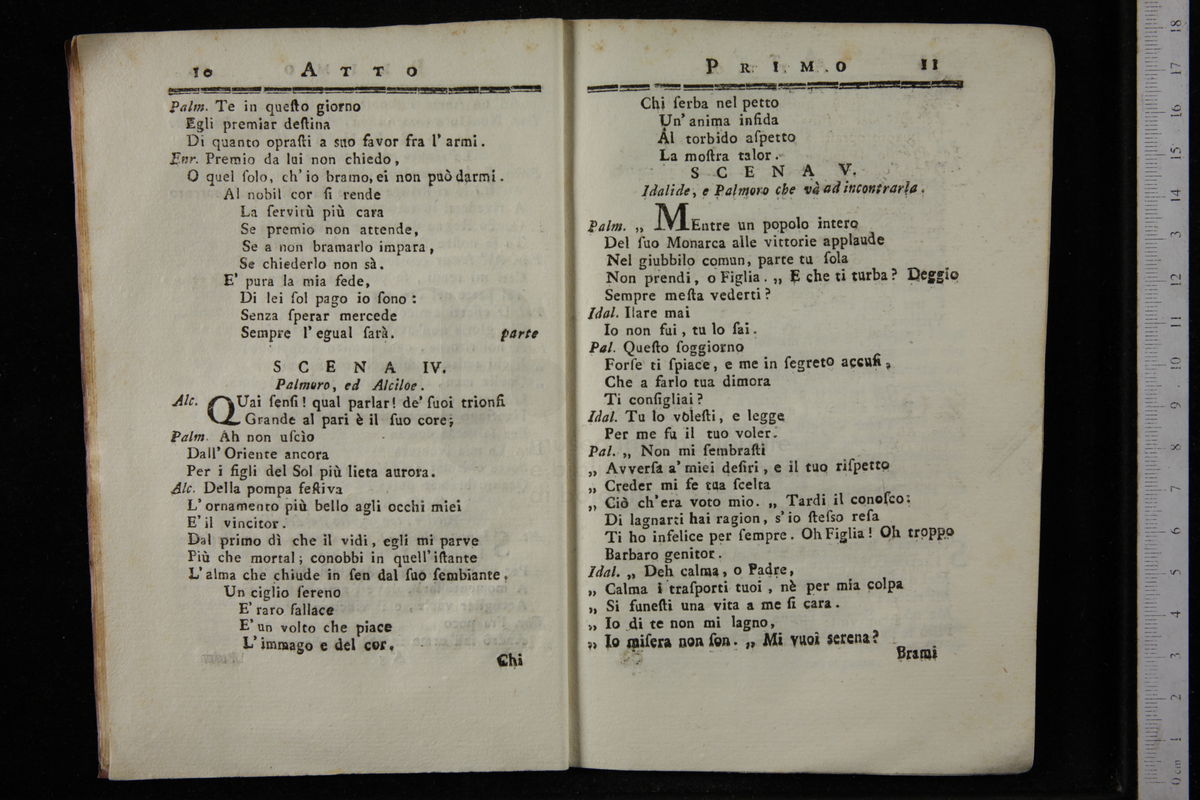 10 ATTO
Palm. Te in queſto giorno
Egli premiar deſtina
Di quanto opraſti a suo favor fra l'armi.
Enr. Premio da lui non chiedo,
O quel ſolo, ch'io bramo, ei non può darmi.
Al nobil cor ſi rende
La ſervitù più cara
Se premio non attende,
Se a non bramarlo impara,
Se chiederlo non sà.
E' pura la mia fede,
Di lei ſol pago io ſono:
Senza ſperar mercede
Sempre l'egual ſarà. parte
SCENA IV.
Palmoro, ed Alciloe.
Alc. QUai ſenſi! qual parlar! de' ſuoi trionfi
Grande al pari è il ſuo core;
Palm. Ah non uſcìo
Dall'Oriente ancora
Per i figli del Sol più lieta aurora.
Alc. Della pompa feſtiva
L'ornamento più bello agli occhi miei
E' il vincitor.
Dal primo dì che il vidi, egli mi parve
Più che mortal; conobbi in quell'iſtante
L'alma che chiude in ſen dal ſuo ſembiante.
Un ciglio ſereno
E' raro fallace
E' un volto che piace
L'immago e del cor.
Chi
PRIMO 11
Chi ſerba nel petto
Un'anima infida
Al torbido aſpetto
La moſtra talor.
SCENA V.
Idalide, e Palmoro che và ad incontrarla.
Palm. „ MEntre un popolo intero
Del ſuo Monarca alle vittorie applaude
Nel giubbilo comun, parte tu ſola
Non prendi, o Figlia. „ E che ti turba? Deggio
Sempre meſta vederti?
Idal. Ilare mai
Io non fui, tu lo ſai.
Pal. Queſto ſoggiorno
Forſe ti ſpiace, e me in ſegreto accuſi,
Che a farlo tua dimora
Ti conſigliai?
Idal. Tu lo voleſti, e legge
Per me fu il tuo voler.
Pal. „ Non mi ſembraſti
„ Avverſa a' miei deſiri, e il tuo riſpetto
„ Creder mi fe tua ſcelta
„ Ciò ch'era voto mio. „ Tardi il conoſco:
Di lagnarti hai ragion, s'io ſteſso reſa
Ti ho infelice per ſempre. Oh Figlia! Oh troppo
Barbaro genitor.
Idal. „ Deh calma, o Padre,
„ Calma i traſporti tuoi, nè per mia colpa
„ Si funeſti una vita a me ſi cara.
„ Io di te non mi lagno,
„ Io miſera non ſon. „ Mi vuoi serena?
Brami
0 cm 1 2 3 4 5 6 7 8 9 10 11 12 13 14 15 16 17 18